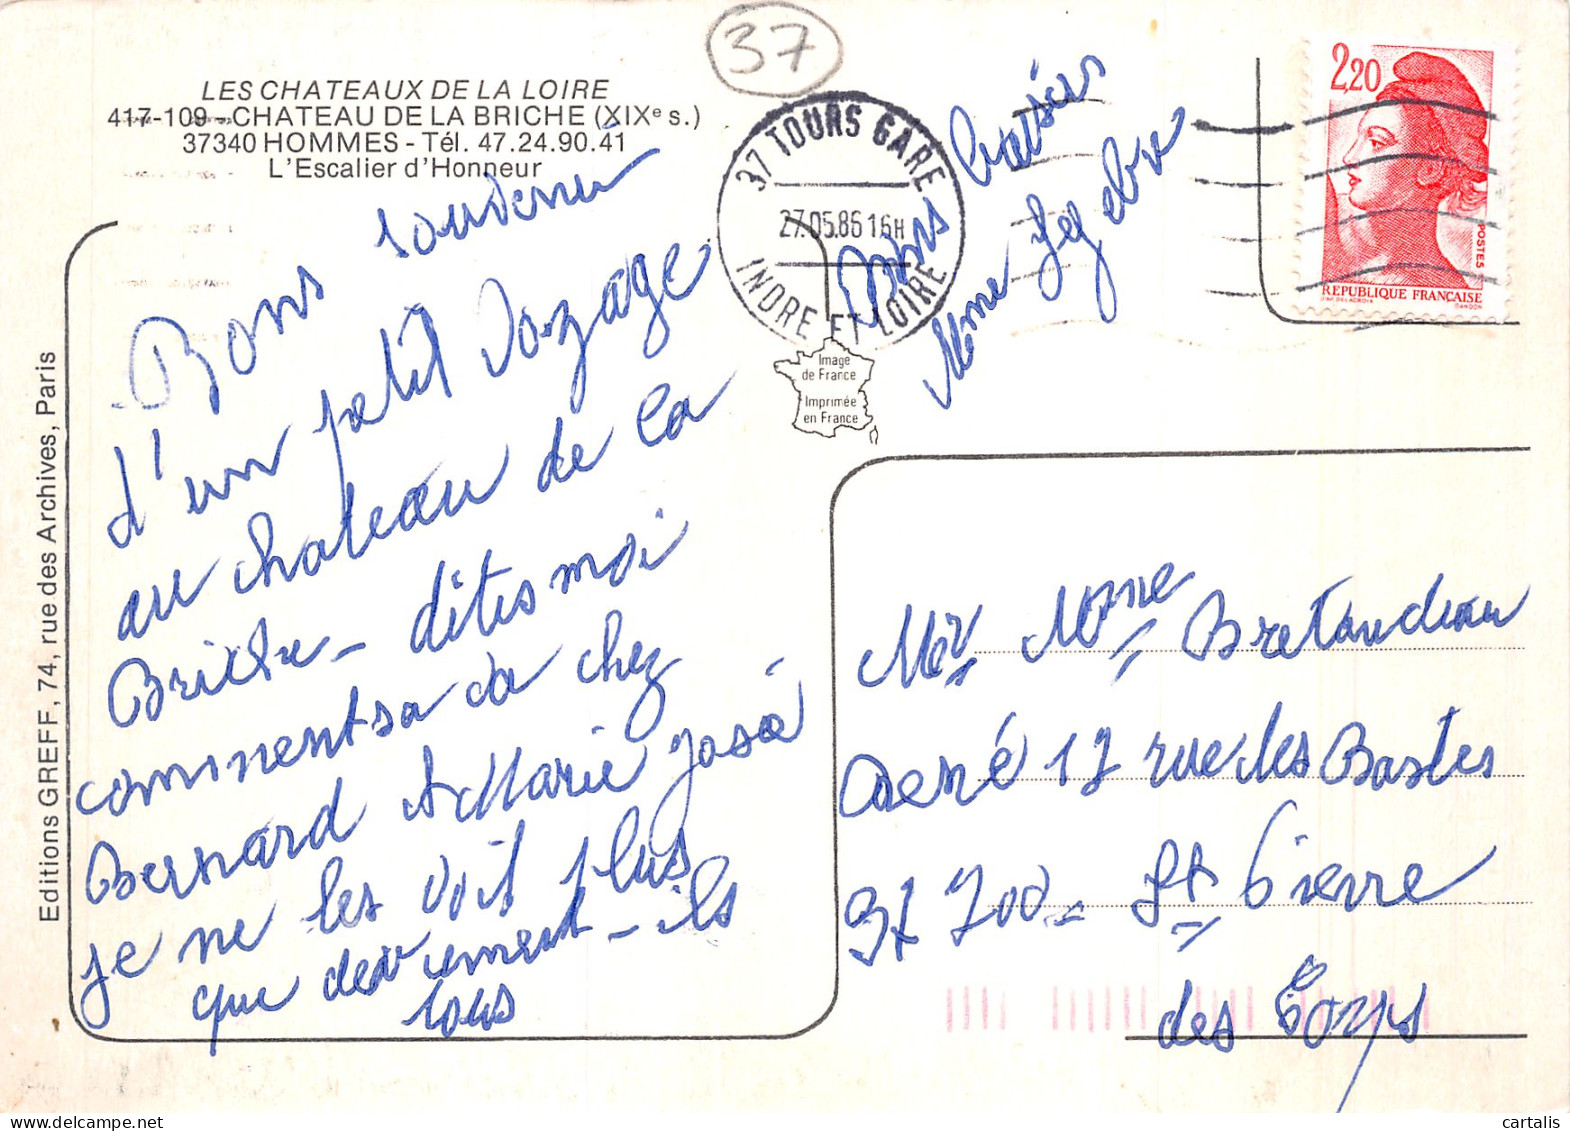 LES CHATEAUX DE LA LOIRE
417-109 - CHATEAU DE LA BRICHE (XIXe s.)
37340 HOMMES - Tél. 47.24.90.41
L'Escalier d'Honneur
37
37 TOURS GARE
27.05.86 16H
INDRE ET LOIRE
2,20
POSTES
REPUBLIQUE FRANÇAISE
D'AP. DELACROIX
GANDON
Image
de France
Imprimée
en France
Editions GREFF, 74, rue des Archives, Paris
Bons souvenir
d'un petit voyage
au chateau de la
Briche - dites moi
comment sa va chez
Bernard et Marie José
je ne les voit plus
que - ils
tous
baisers
Mme
Mr Mme Bretaudeau
René 17 rue des Bastes
37 700 - St Pierre
des Corps
cartalis